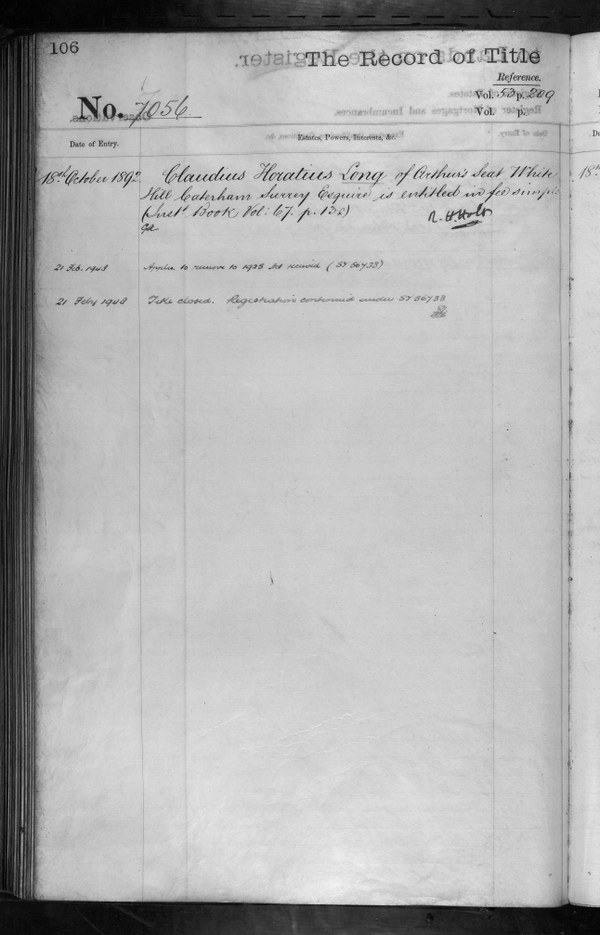 106
The Record of Title
Reference.
No. 7056. Vol. 53 p. 209
Vol. p.
Date of Entry. Estates, Powers, Interests, &c.
18th October 1892 Claudius Horatius Long of Arthur's Seat White
Hill Caterham Surrey Esquire is entitled in fee simple
(Inst. Book, Vol: 67. p. 135)
21 Feb. 1948 to 1925 Act (SY 56733)
21 Feby 1948 Title closed. Registration continued under SY 56733